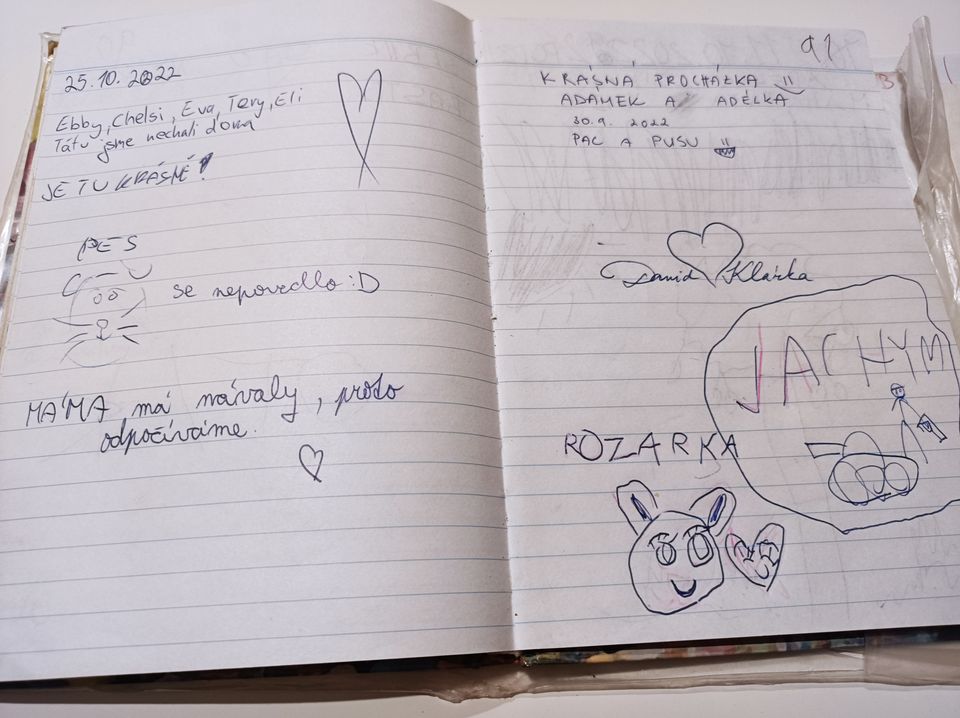 25.10.2022
Ebby, Chelsi, Eva, Tery, Eli
Tátu jsme nechali doma
JE TU KRÁSNĚ!
PES
se nepovedlo :D
MÁMA má návaly, proto
odpočíváme.
91
KRÁSNÁ PROCHÁZKA
ADÁMEK A ADÉLKA
30.9. 2022
PAC A PUSU
David Klárka
JACHYM
ROZARKA